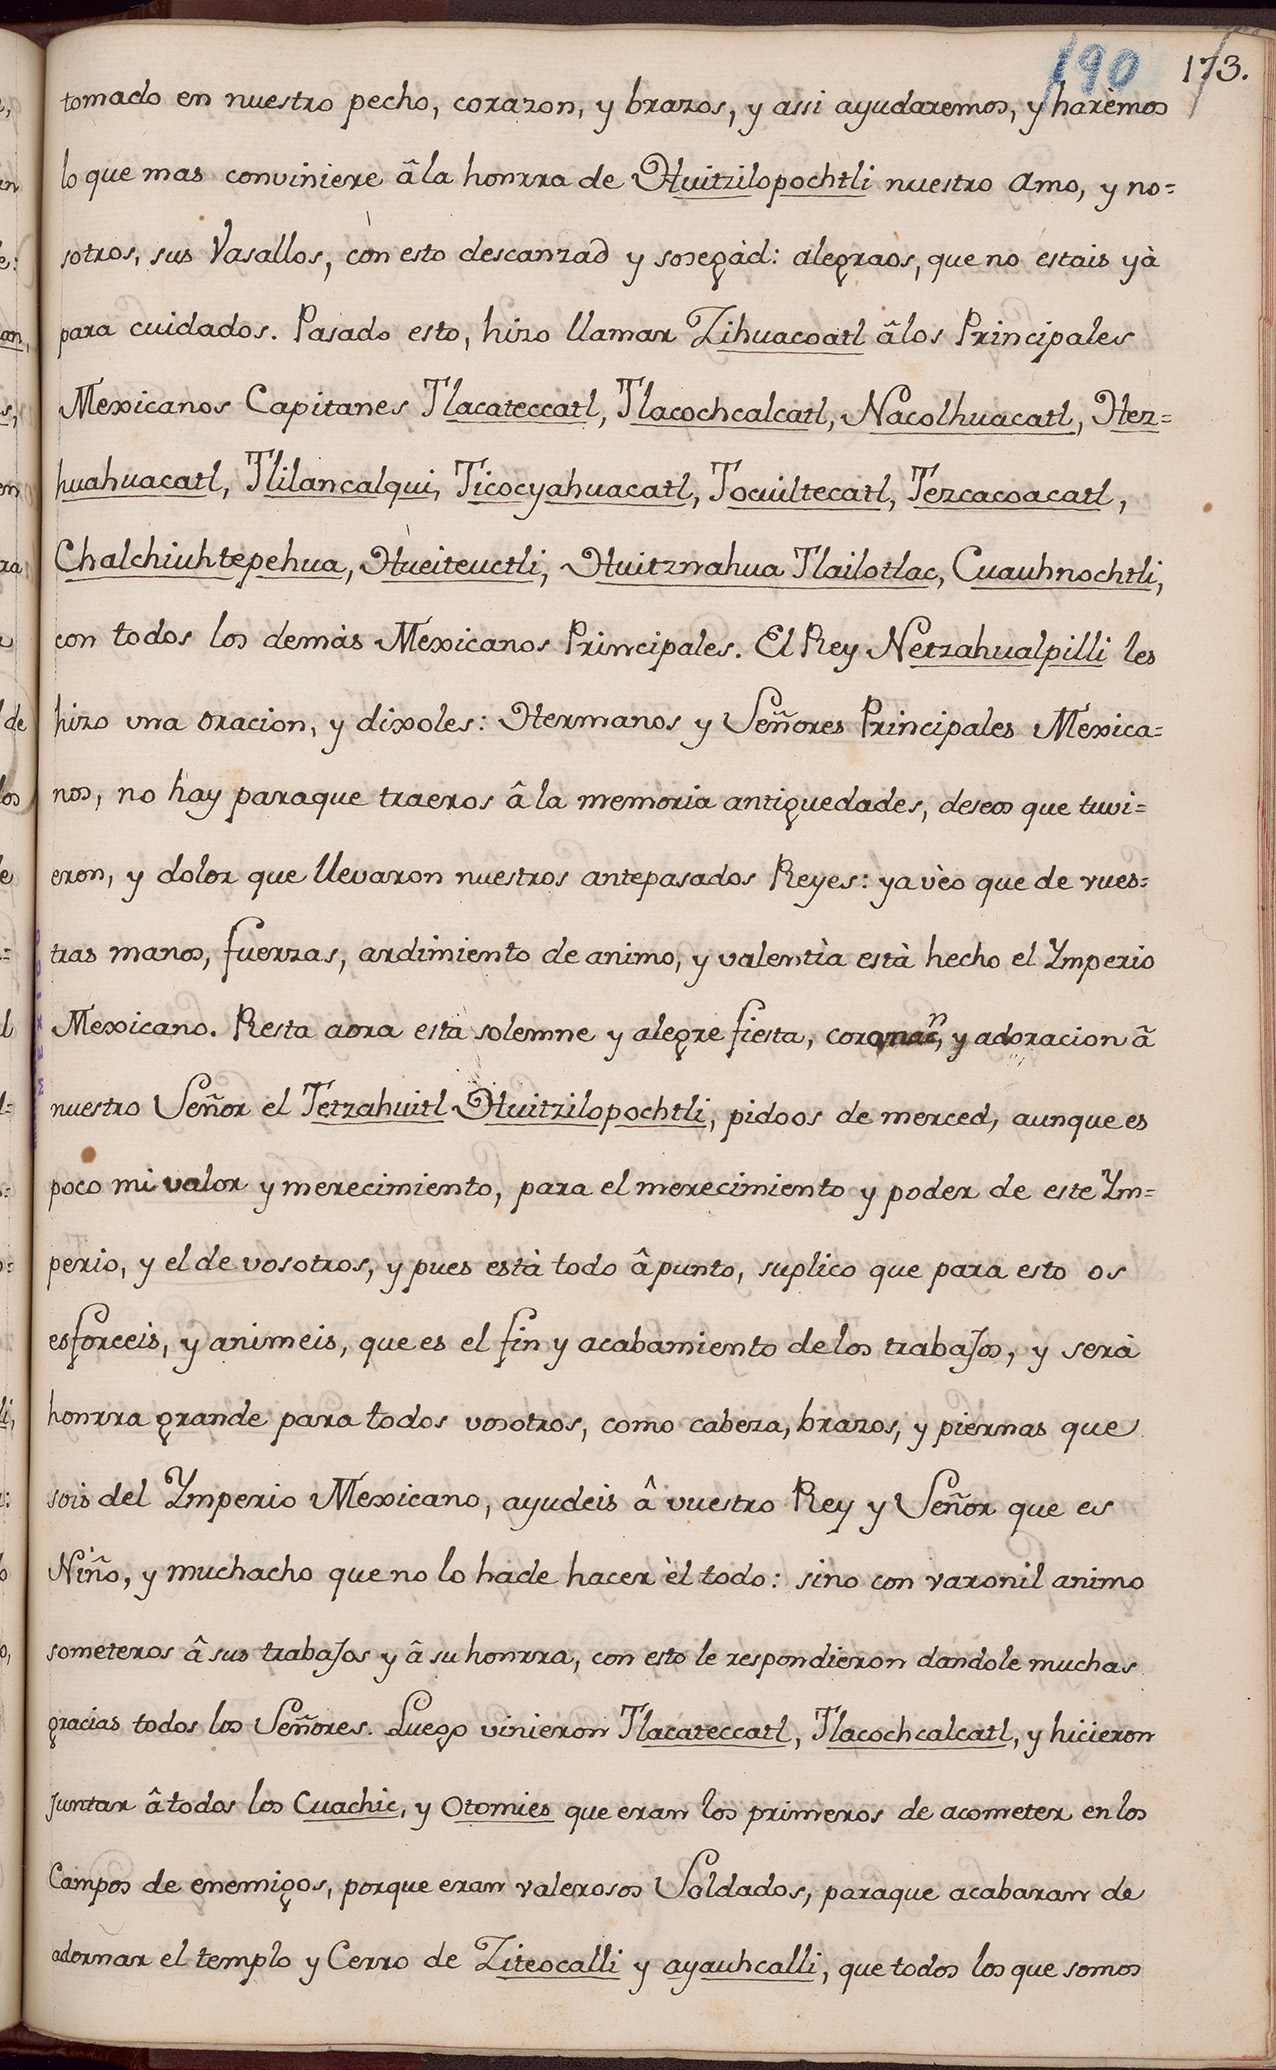 190 173.
tomado en nuestro pecho, corazon, y brazos, y assi ayudaremos, y harèmos
lo que mas conviniere â la honrra de Huitzilopochtli nuestro Amo, y no=
sotros, sus Vasallos, con esto descanzad y sosegàd: alegraos, que no estais yà
para cuidados. Pasado esto, hizo llamar Zihuacoatl âlos Principales
Mexicanos Capitanes Tlacateccatl, Tlacochcalcatl, Nacolhuacatl, Hez=
huahuacatl, Tlilancalqui, Ticocyahuacatl, Tocuiltecatl, Tezcacoacatl,
Chalchiuhtepehua, Hueiteuctli, Huitznahua Tlailotlac, Cuauhnochtli,
con todos los demàs Mexicanos Principales. El Rey Netzahualpilli les
hizo una oracion, y dixoles: Hermanos y Señores Principales Mexica=
nos, no hay paraque traeros â la memoria antiguedades, deseos que tuvi=
eron, y dolor que llevaron nuestros antepasados Reyes: ya vèo que de vues=
tras manos, fuerzas, ardimiento de animo, y valentìa està hecho el Ymperio
Mexicano. Resta aora esta solemne y alegre fiesta, y adoracion â
nuestro Señor el Tetzahuitl Huitzilopochtli, pidoos de merced, aunque es
poco mi valor y merecimiento, para el merecimiento y poder de este Ym=
perio, y el de vosotros, y pues està todo â punto, suplico que para esto os
esforceis, y animeis, que es el fin y acabamiento de los trabaJos, y serà
honrra grande para todos vosotros, como cabeza, brazos, y piernas que
sois del Ymperio Mexicano, ayudeis â vuestro Rey y Señor que es
Niño, y muchacho que no lo hade hacer èl todo: sino con varonil animo
someteros â sus trabaJos y â su honrra, con esto le respondieron dandole muchas
gracias todos los Señores. Luego vinieron Tlacateccatl, Tlacochcalcatl, y hicieron
Juntar â todos los Cuachic, y Otomies que eran los primeros de acometer en los
Campos de enemigos, porque eran valerosos Soldados, paraque acabaran de
adornar el templo y Cerro de Ziteocalli y ayauhcalli, que todos los que somos